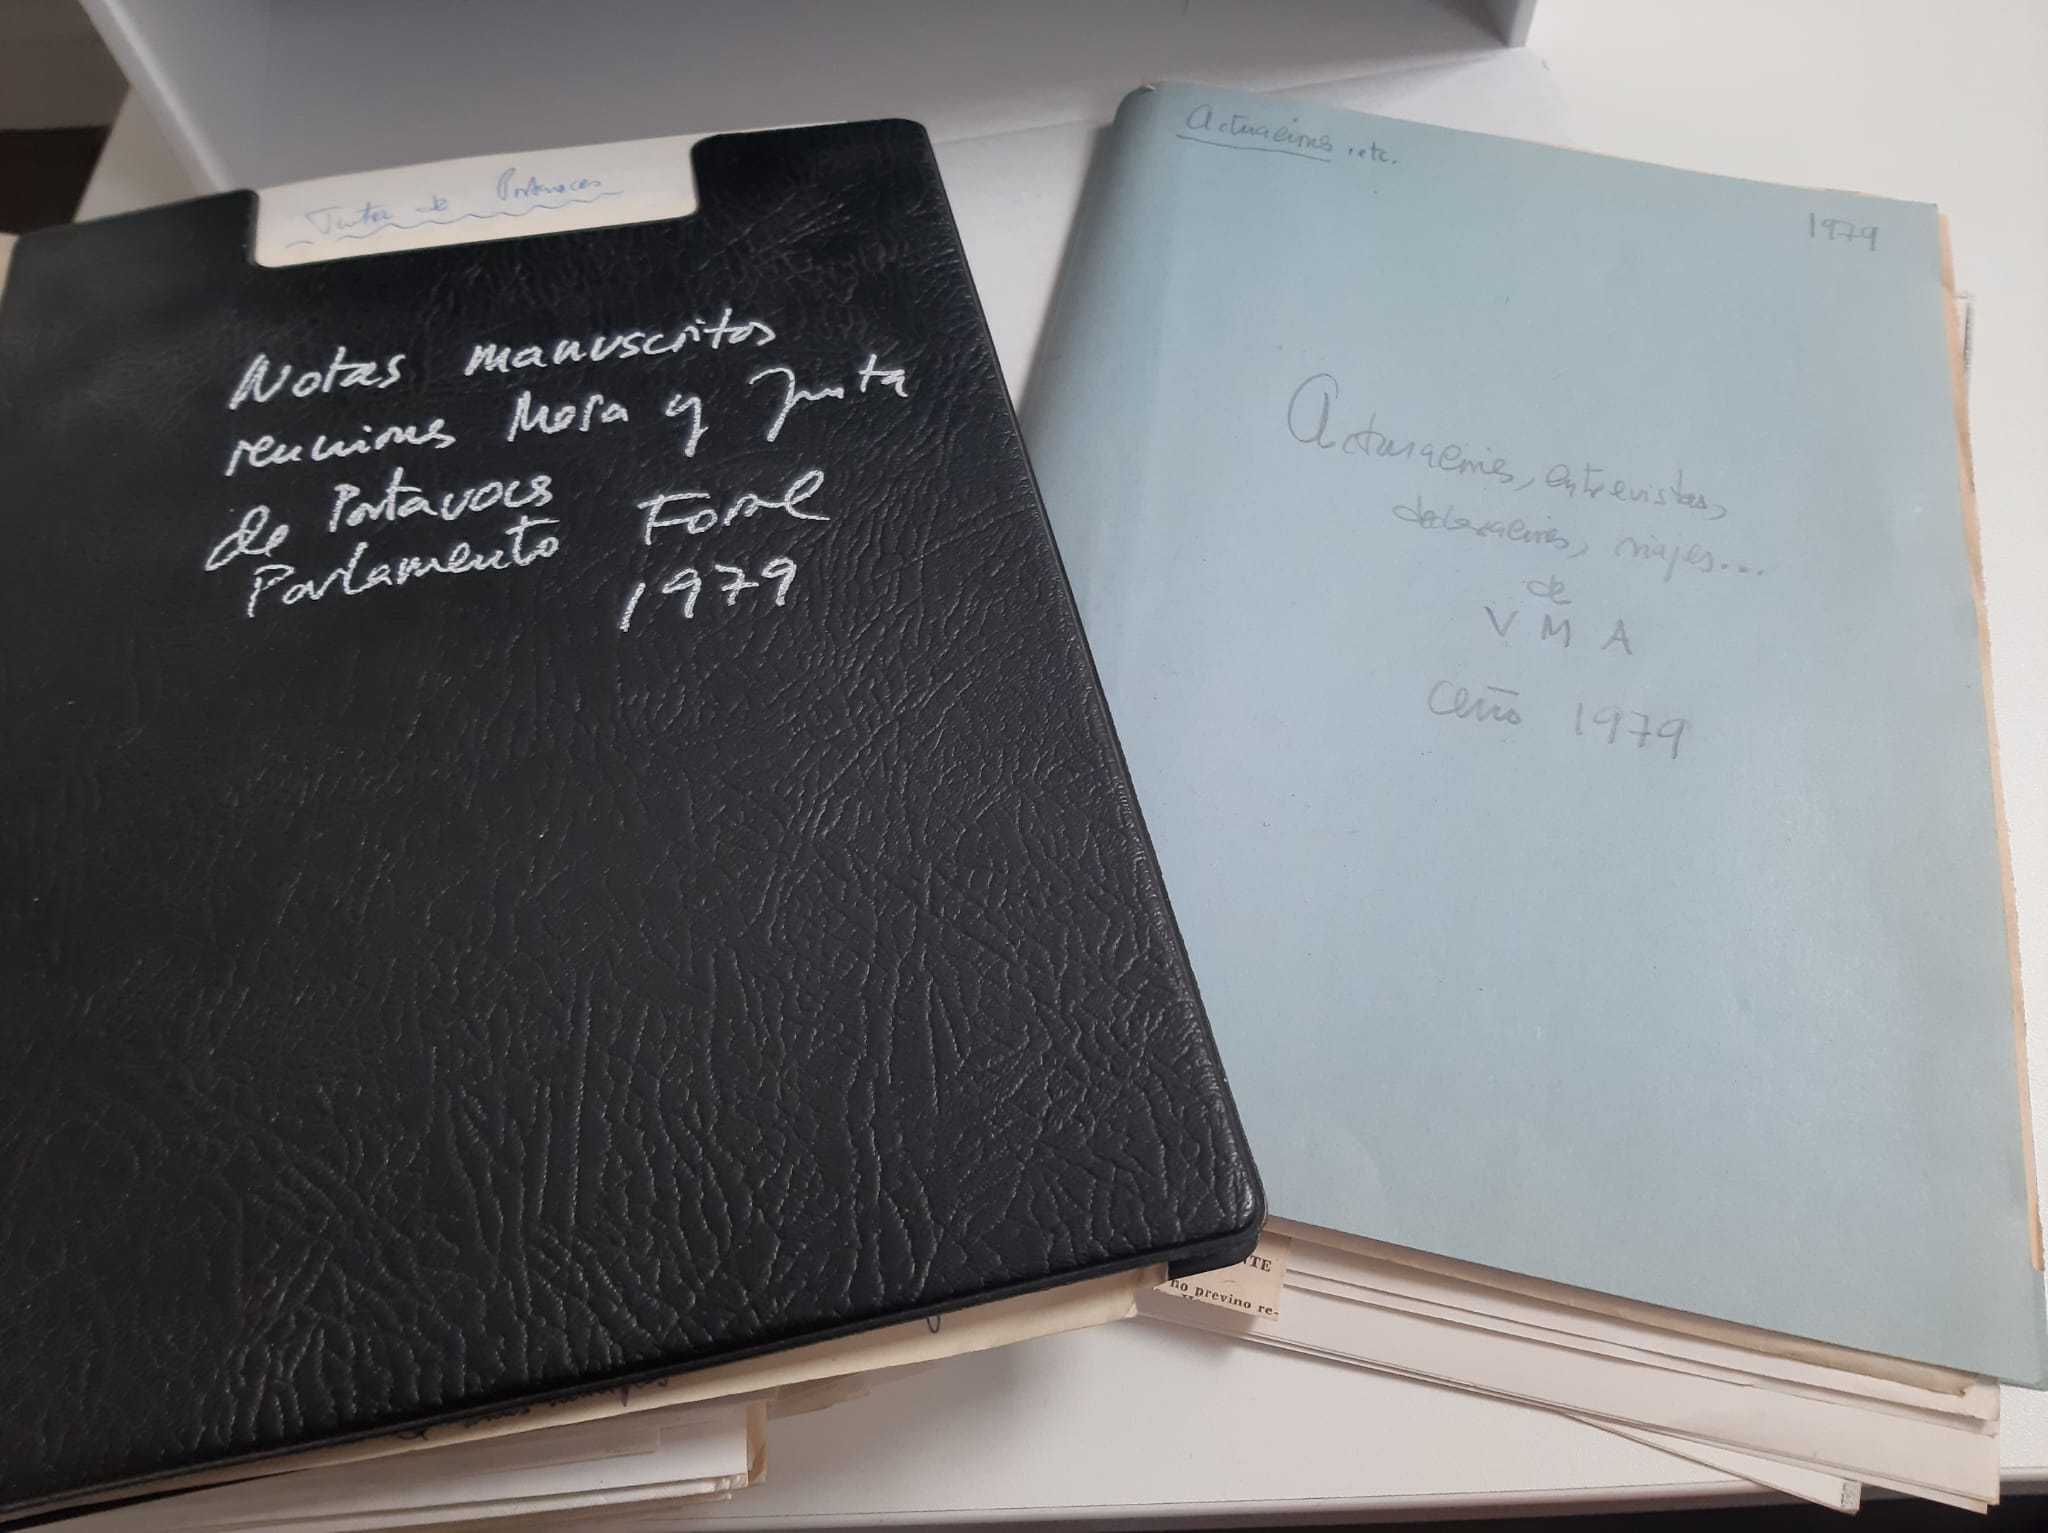 Junta de Portavoces
Notas manuscritos
reuniones Mesa y Junta
de Portavoces
Parlamento Foral
1979
Actuaciones, etc.
1979
Actuaciones, entrevistas,
declaraciones, viajes...
de
V M A
año 1979
NTE
no previno re-